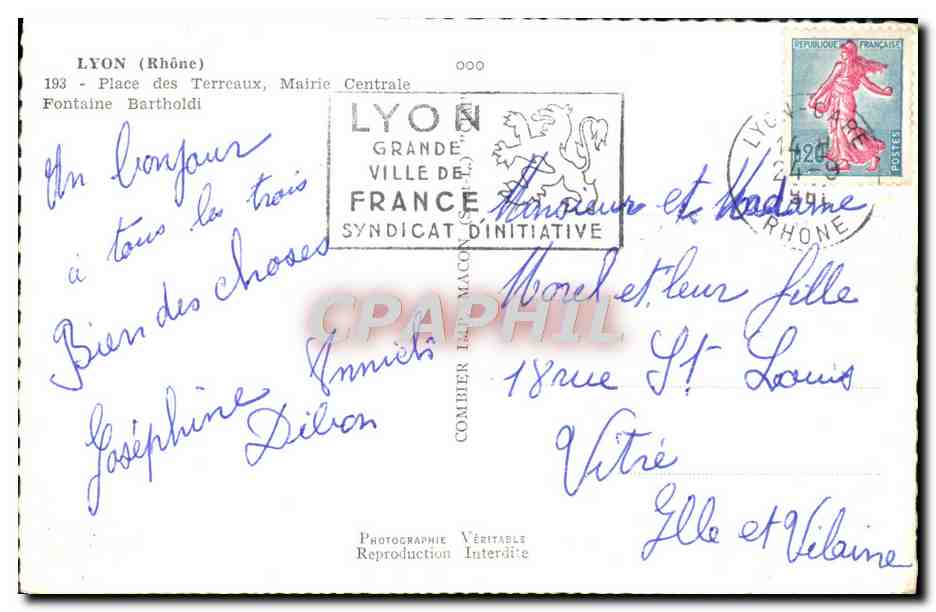 LYON (Rhône)
193 - Place des Terreaux, Mairie Centrale
Fontaine Bartholdi
ooo
Un bonjour
à tous les trois
Bien des choses
Joséphine
Dibon
LYON
GRANDE
VILLE DE
FRANCE
SYNDICAT D'INITIATIVE
REPUBLIQUE FRANÇAISE
0,20
POSTES
LYON-GARE
24-9
RHONE
Monsieur et Madame
Morel et leur fille
18 rue St. Louis
Vitré
Ille et Vilaine
COMBIER IMP. MACON
CPAPHIL
PHOTOGRAPHIE VÉRITABLE
Reproduction Interdite